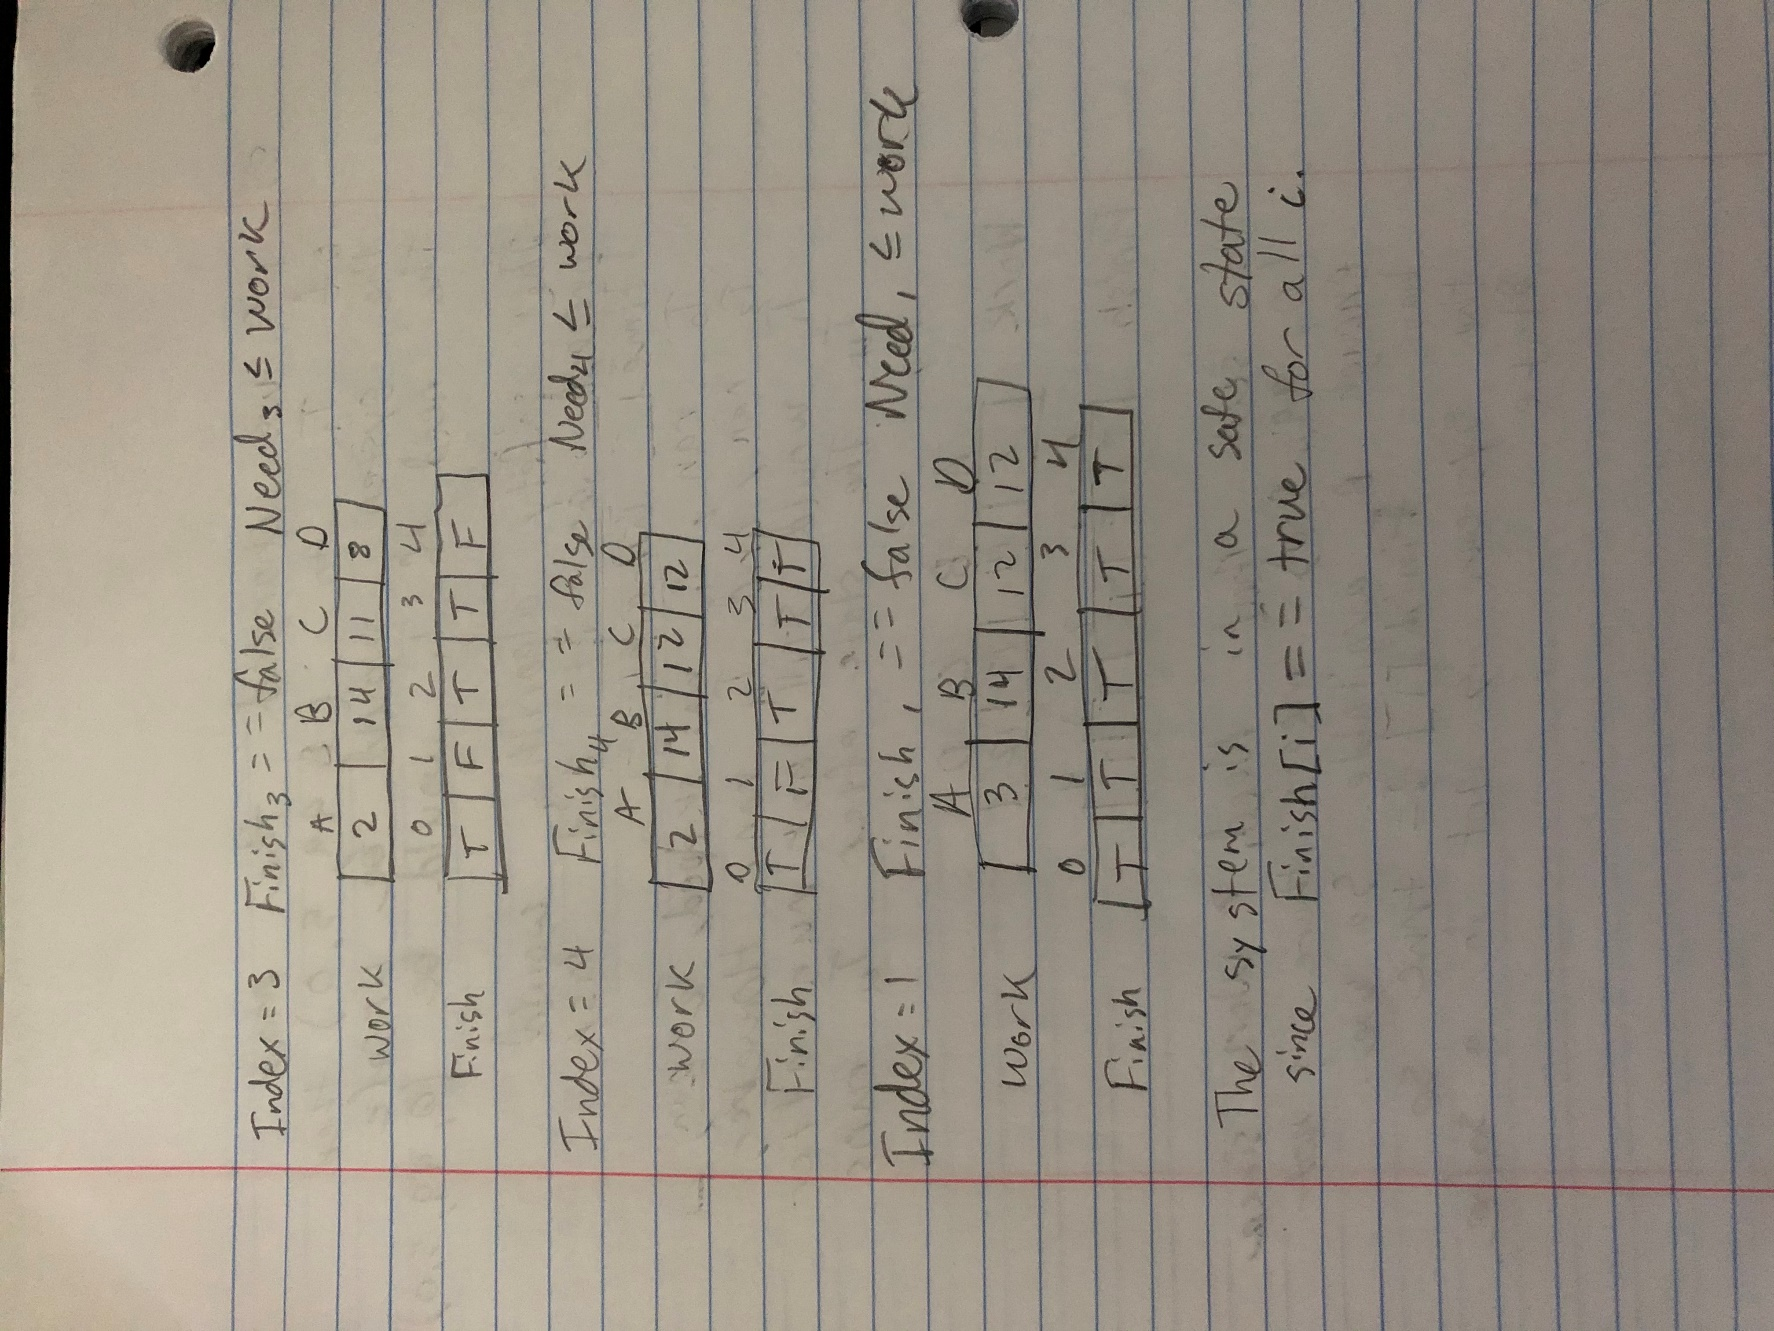 Index = 3 Finish₃ == false Need₃ ≤ work
A B C D
work 2 14 11 8
0 1 2 3 4
Finish T F T T F
Index = 4 Finish₄ == false Need₄ ≤ work
A B C D
work 2 14 12 12
0 1 2 3 4
Finish T F T T T
Index = 1 Finish₁ == false Need₁ ≤ work
A B C D
work 3 14 12 12
0 1 2 3 4
Finish T T T T T
The system is in a safe state
since Finish[i] == true for all i.